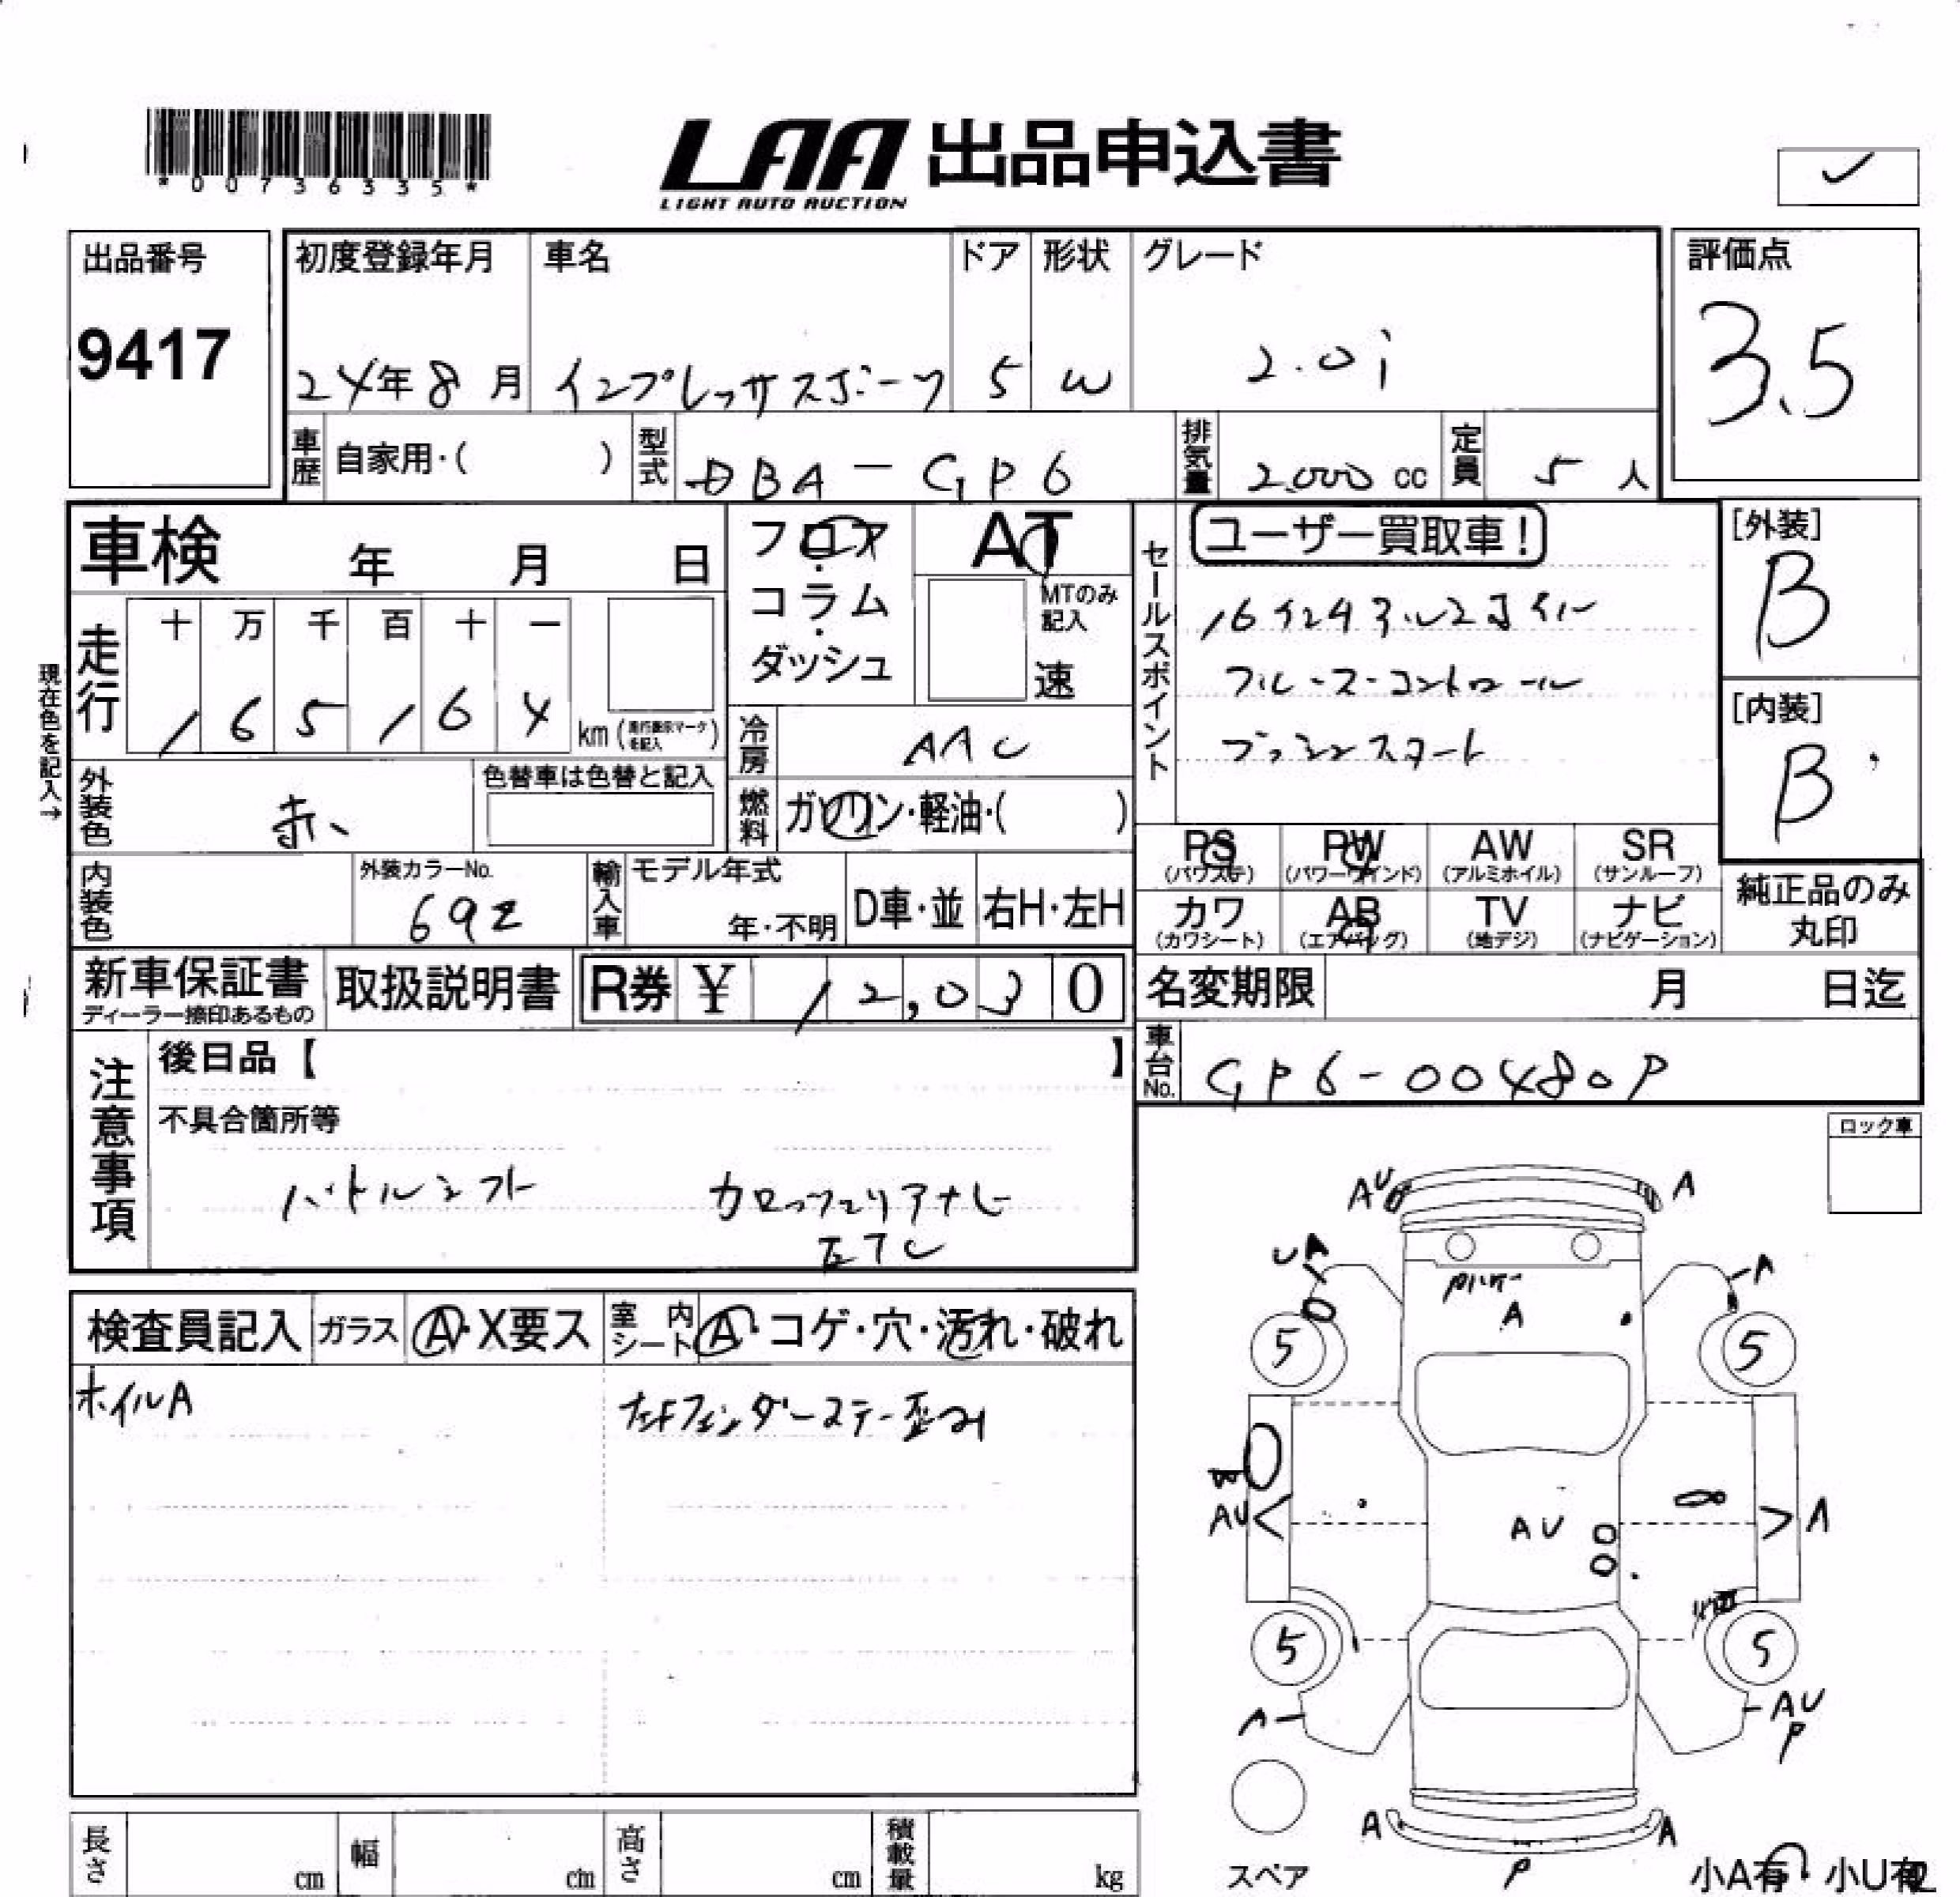 *00736335*
LAA 出品申込書
LIGHT AUTO AUCTION
出品番号
9417
初度登録年月
24年8月
車名
インプレッサスポーツ
ドア
5
形状
W
グレード
2.0i
評価点
3.5
車歴 自家用・( )
型式 DBA-GP6
排気量 2,000 cc
定員 5 人
車検 年 月 日
フロア・コラム・ダッシュ
AT
MTのみ記入
速
セールスポイント
ユーザー買取車!
クルーズコントロール
プッシュスタート
[外装]
B
[内装]
B
走行
十 万 千 百 十 一
1 6 5 1 6 4
km (走行表示マークを記入)
現在色を記入→
冷房 AAC
外装色 赤
色替車は色替と記入
燃料 ガソリン・軽油・( )
PS (パワステ)
PW (パワーウインド)
AW (アルミホイル)
SR (サンルーフ)
カワ (カワシート)
AB (エアバッグ)
TV (地デジ)
ナビ (ナビゲーション)
純正品のみ丸印
内装色
外装カラーNo.
692
輸入車 モデル年式
年・不明
D車・並
右H・左H
新車保証書
ディーラー捺印あるもの
取扱説明書
R券 ¥ 12,030
名変期限 月 日迄
車台No. GP6-00480P
注意事項
後日品【 】
不具合箇所等
パドルシフト カロッツェリアナビ
ETC
ロック車
検査員記入 ガラス A・X要ス 室内シート A・コゲ・穴・汚れ・破れ
ホイルA
左Fフェンダーステー歪み
AU A
UA A
A
5 5
AU AU A
5 5
A AU
P
A A
P
スペア
小A有・小U有
長さ cm
幅 cm
高さ cm
積載量 kg